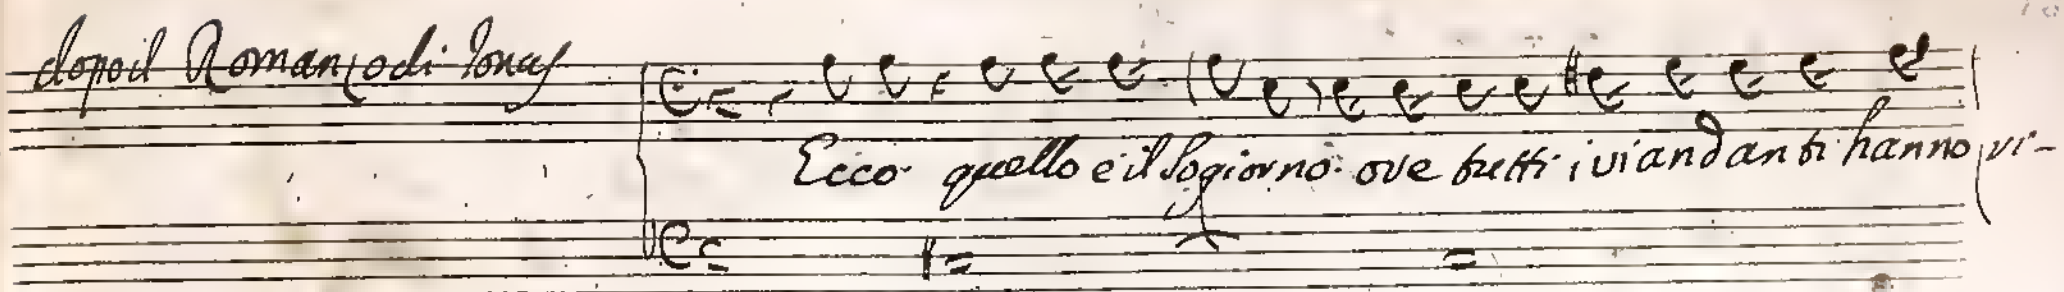 dopo il Romanzo di Ionas
Ecco quello è il sogiorno ove tutti i viandanti hanno vi-